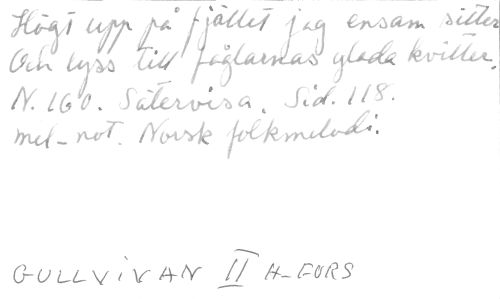 Högt upp på fjället jag ensam sitter
Och lyss till fåglarnas glada kvitter.
N. 160. Sätervisa. Sid. 118.
mel-not. Norsk folkmelodi.
GULLVIVAN II H-FORS